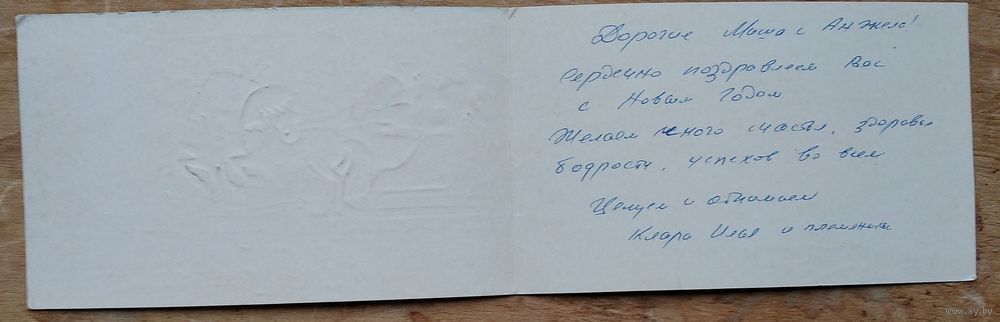 Дорогие Маша и Анжела!
Сердечно поздравляем Вас
с Новым Годом
Желаем много счастья, здоровья
бодрости, успехов во всем
Целуем и обнимаем
Клара Илья и племянники
www.ay.by